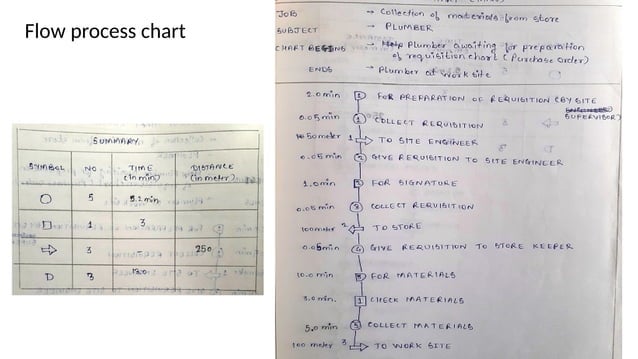 Flow process chart
JOB → Collection of materials from store
SUBJECT → PLUMBER
CHART BEGINS → Plumber awaiting for preparation
of requisition chart (Purchase order)
ENDS → Plumber at work site
2.0 min D 1 FOR PREPARATION OF REQUISITION (BY SITE
SUPERVISOR)
0.05 min 1 COLLECT REQUISITION
50 meter 1 ⇒ TO SITE ENGINEER
0.05 min 2 GIVE REQUISITION TO SITE ENGINEER
1.0 min FOR SIGNATURE
0.05 min 3 COLLECT REQUISITION
100 meter 2 TO STORE
0.05 min 4 GIVE REQUISITION TO STORE KEEPER
10.0 min FOR MATERIALS
3.0 min. 1 CHECK MATERIALS
5.0 min 5 COLLECT MATERIALS
100 meter 3 ⇒ TO WORK SITE
SUMMARY
SYMBOL NO TIME (in mins) DISTANCE (in meter)
○ 5 5.2 min
□ 1 3
⇒ 3 250
D 3 13.0